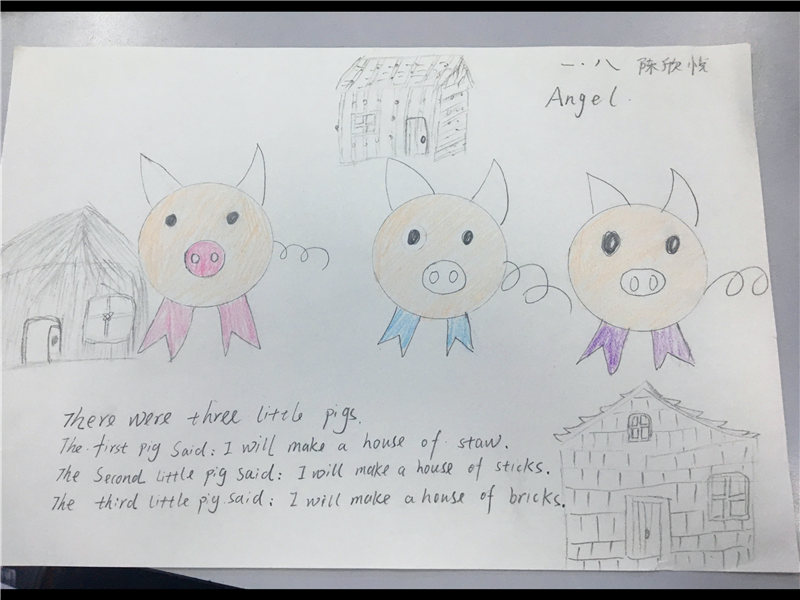 一.八 陈欣悦
Angel.
There were three little pigs.
The first pig said: I will make a house of staw.
The second little pig said: I will make a house of sticks.
The third little pig said: I will make a house of bricks.